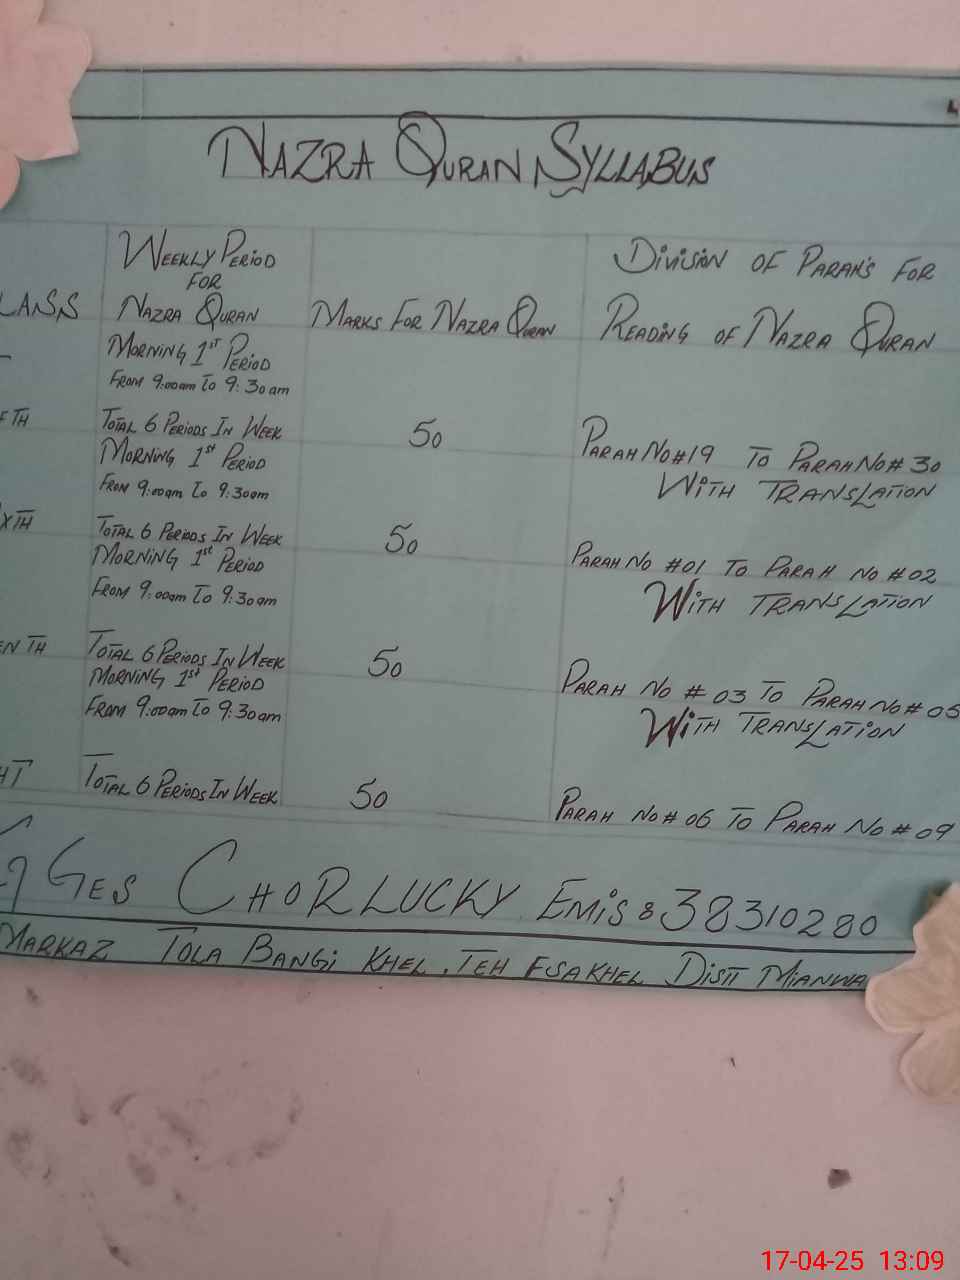 NAZRA QURAN SYLLABUS
WEEKLY PERIOD
FOR
NAZRA QURAN
LASS
MARKS FOR NAZRA QURAN
DIVISION OF PARAH'S FOR
READING OF NAZRA QURAN
MORNING 1ST PERIOD
FROM 9:00am To 9:30am
FTH
TOTAL 6 PERIODS IN WEEK
50
PARAH NO#19 TO PARAH NO#30
WITH TRANSLATION
MORNING 1st PERIOD
FROM 9:00am To 9:30am
XTH
TOTAL 6 PERIODS IN WEEK
50
PARAH NO #01 TO PARAH NO #02
WITH TRANSLATION
MORNING 1st PERIOD
FROM 9:00am To 9:30am
ENTH
TOTAL 6 PERIODS IN WEEK
50
PARAH NO # 03 TO PARAH NO# 05
WITH TRANSLATION
MORNING 1st PERIOD
FROM 9:00am To 9:30am
HT
TOTAL 6 PERIODS IN WEEK
50
PARAH NO# 06 TO PARAH NO # 09
GES CHORLUCKY EMIS 8 38310280
MARKAZ TOLA BANGI KHEL, TEH ESAKHEL DISTT MIANWA
17-04-25 13:09